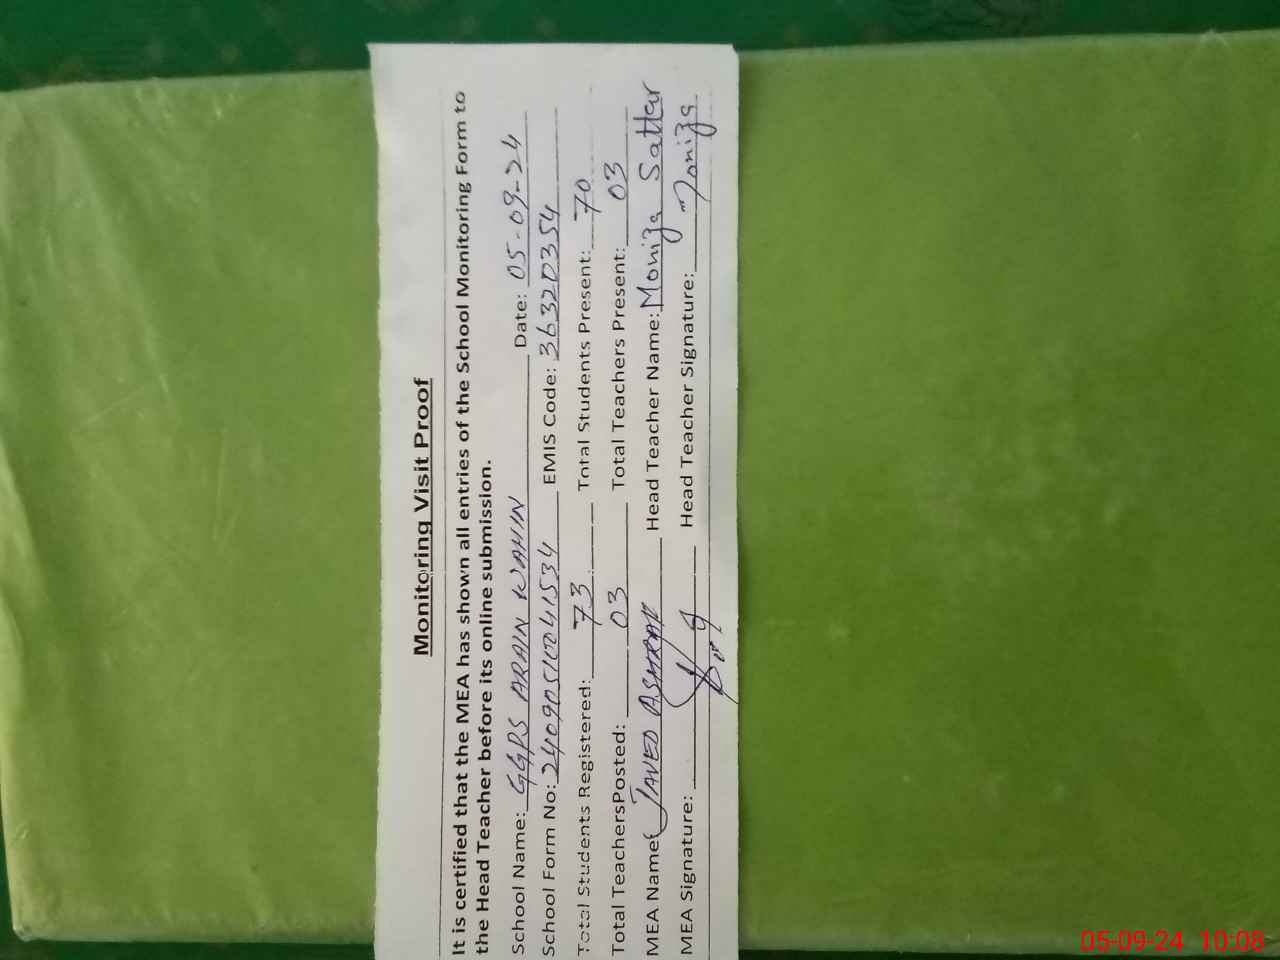 Monitoring Visit Proof
It is certified that the MEA has shown all entries of the School Monitoring Form to
the Head Teacher before its online submission.
School Name: GGPS ARAIN WAHIN Date: 05-09-24
School Form No: EMIS Code: 36320354
Total Students Registered: 73 Total Students Present: 70
Total TeachersPosted: 03 Total Teachers Present: 03
MEA Name: JAVED ASHRAF Head Teacher Name: Moniza Sattar
MEA Signature: Head Teacher Signature: Moniza
05-09-24 10:08